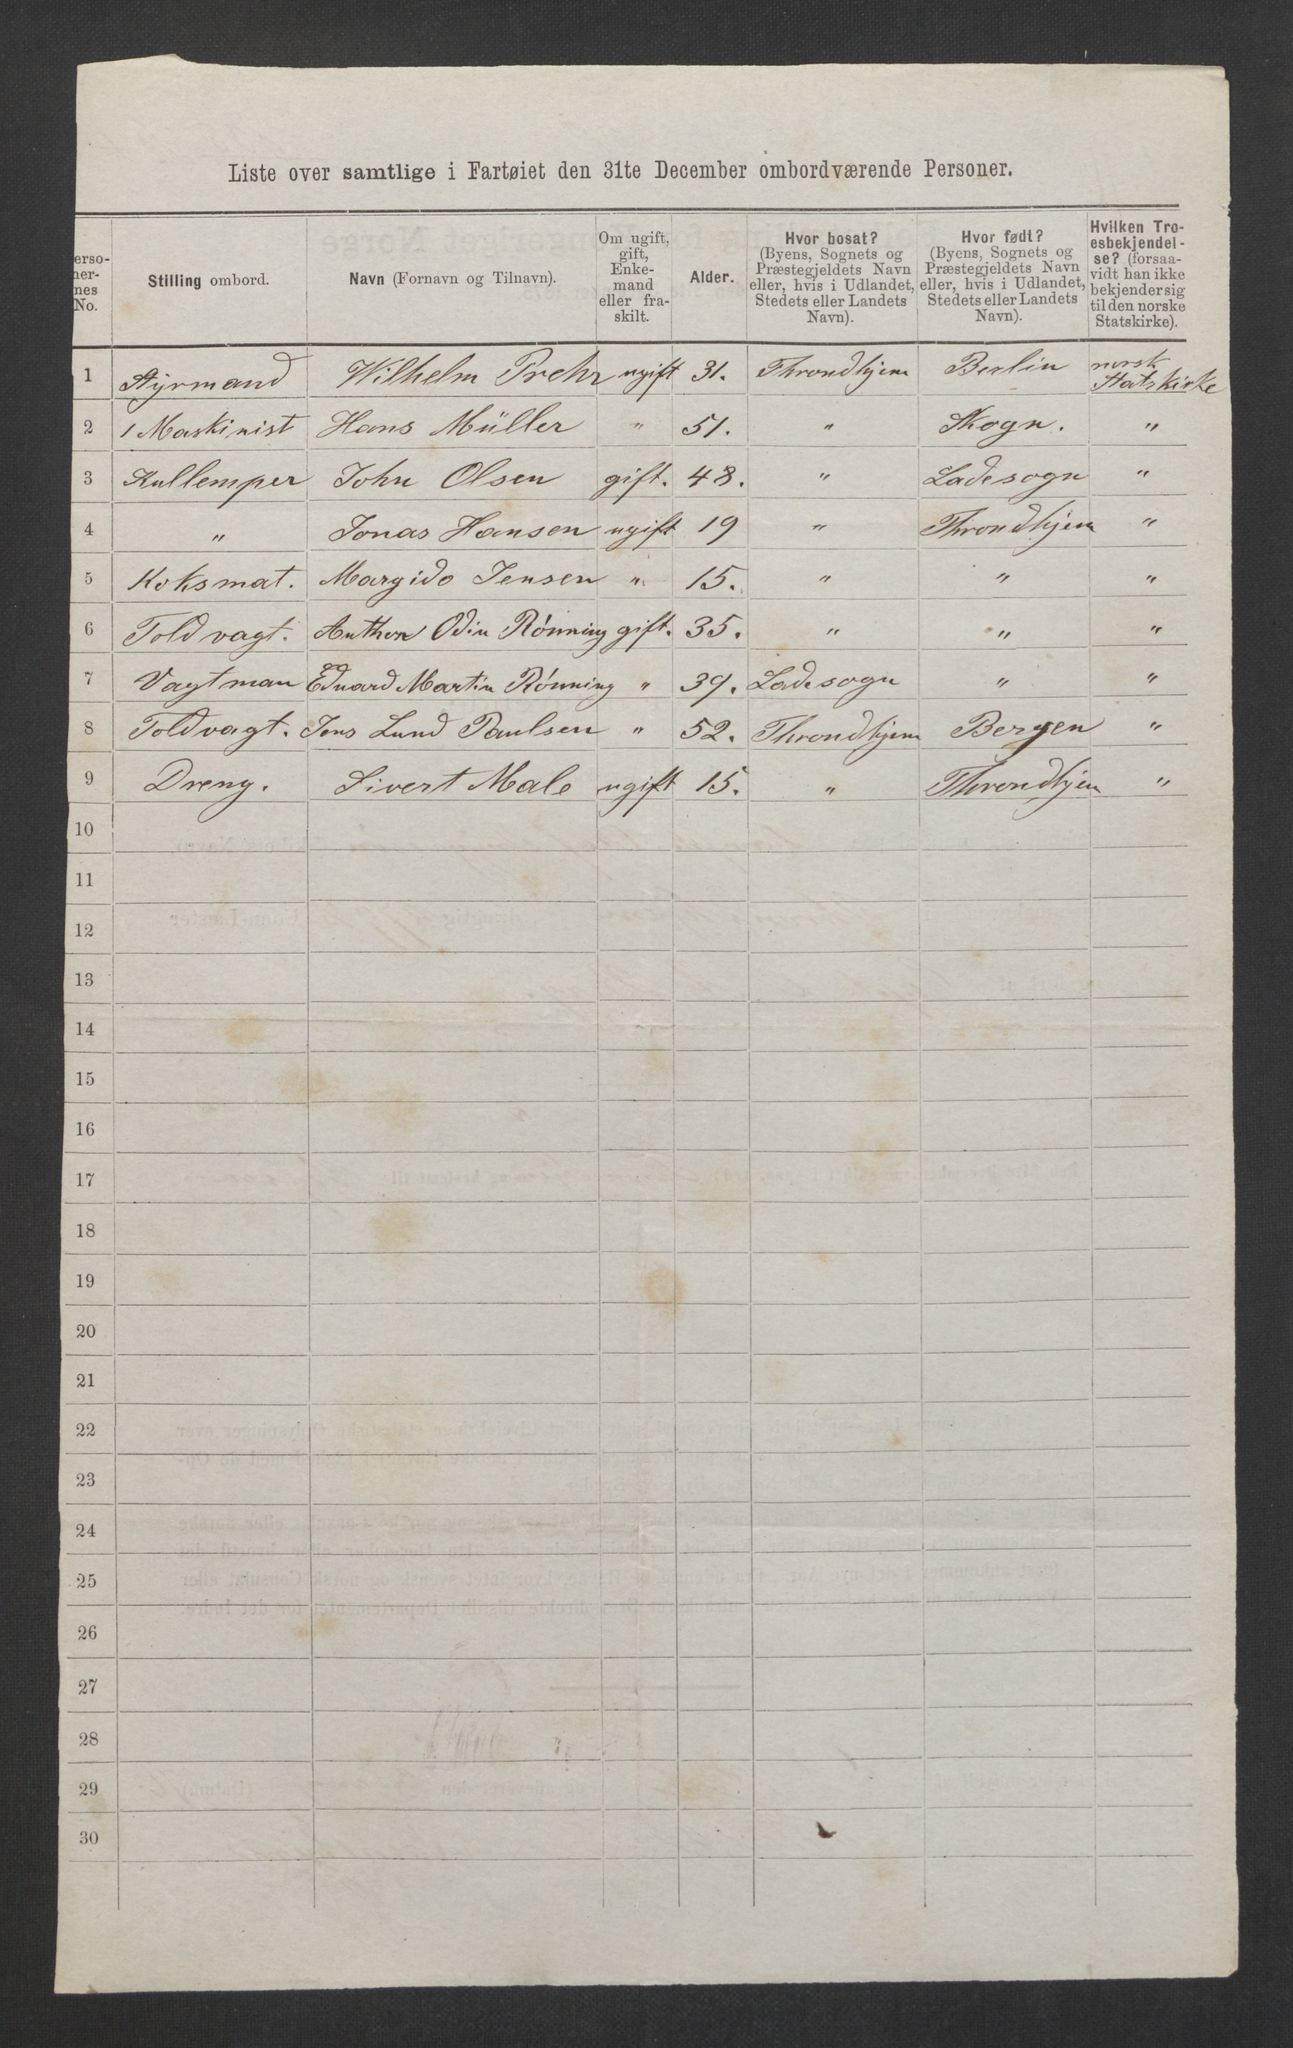 Liste over samtlige i Fartøiet den 31te December ombordværende Personer.
erso-
ner-
nes
No.
Stilling ombord.
Navn (Fornavn og Tilnavn).
Om ugift,
gift,
Enke-
mand
eller fra-
skilt.
Alder.
Hvor bosat?
(Byens, Sognets og
Præstegjeldets Navn
eller, hvis i Udlandet,
Stedets eller Landets
Navn).
Hvor født?
(Byens, Sognets og
Præstegjeldets Navn
eller, hvis i Udlandet,
Stedets eller Landets
Navn).
Hvilken Tro-
esbekjendel-
se? (forsaa-
vidt han ikke
bekjender sig
til den norske
Statskirke).
1 Styrmand Wilhelm Prehr ugift 31. Throndhjem Berlin norsk Statskirke
2 1 Maskinist Hans Müller " 51. " Skogn. "
3 Kullemper John Olsen gift. 48. " Ladesogn "
4 " Jonas Hansen ugift 19 " Throndhjem "
5 Koksmat. Margido Jensen " 15. " " "
6 Toldvagt. Anthon Odin Rønning gift. 35. " " "
7 Vagtman Eduard Martin Rønning " 39. Ladesogn " "
8 Toldvagt. Jens Lund Paulsen " 52. Throndhjem Bergen "
9 Dreng. Sivert Male ugift 15. " Throndhjem "
10
11
12
13
14
15
16
17
18
19
20
21
22
23
24
25
26
27
28
29
30